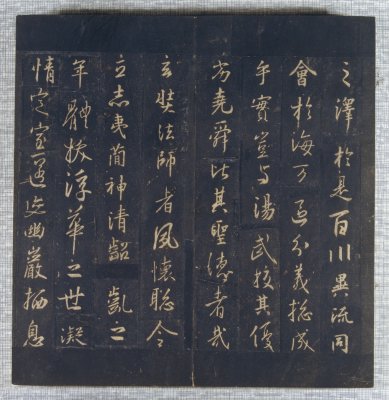 之澤於是百川異流同
會於海万區分義總成
乎實豈与湯武校其優
劣堯舜比其聖德者哉
玄奘法師者夙懷聰令
立志夷簡神清齠齔之
年體拔浮華之世凝
情定室匿迹幽巖栖息